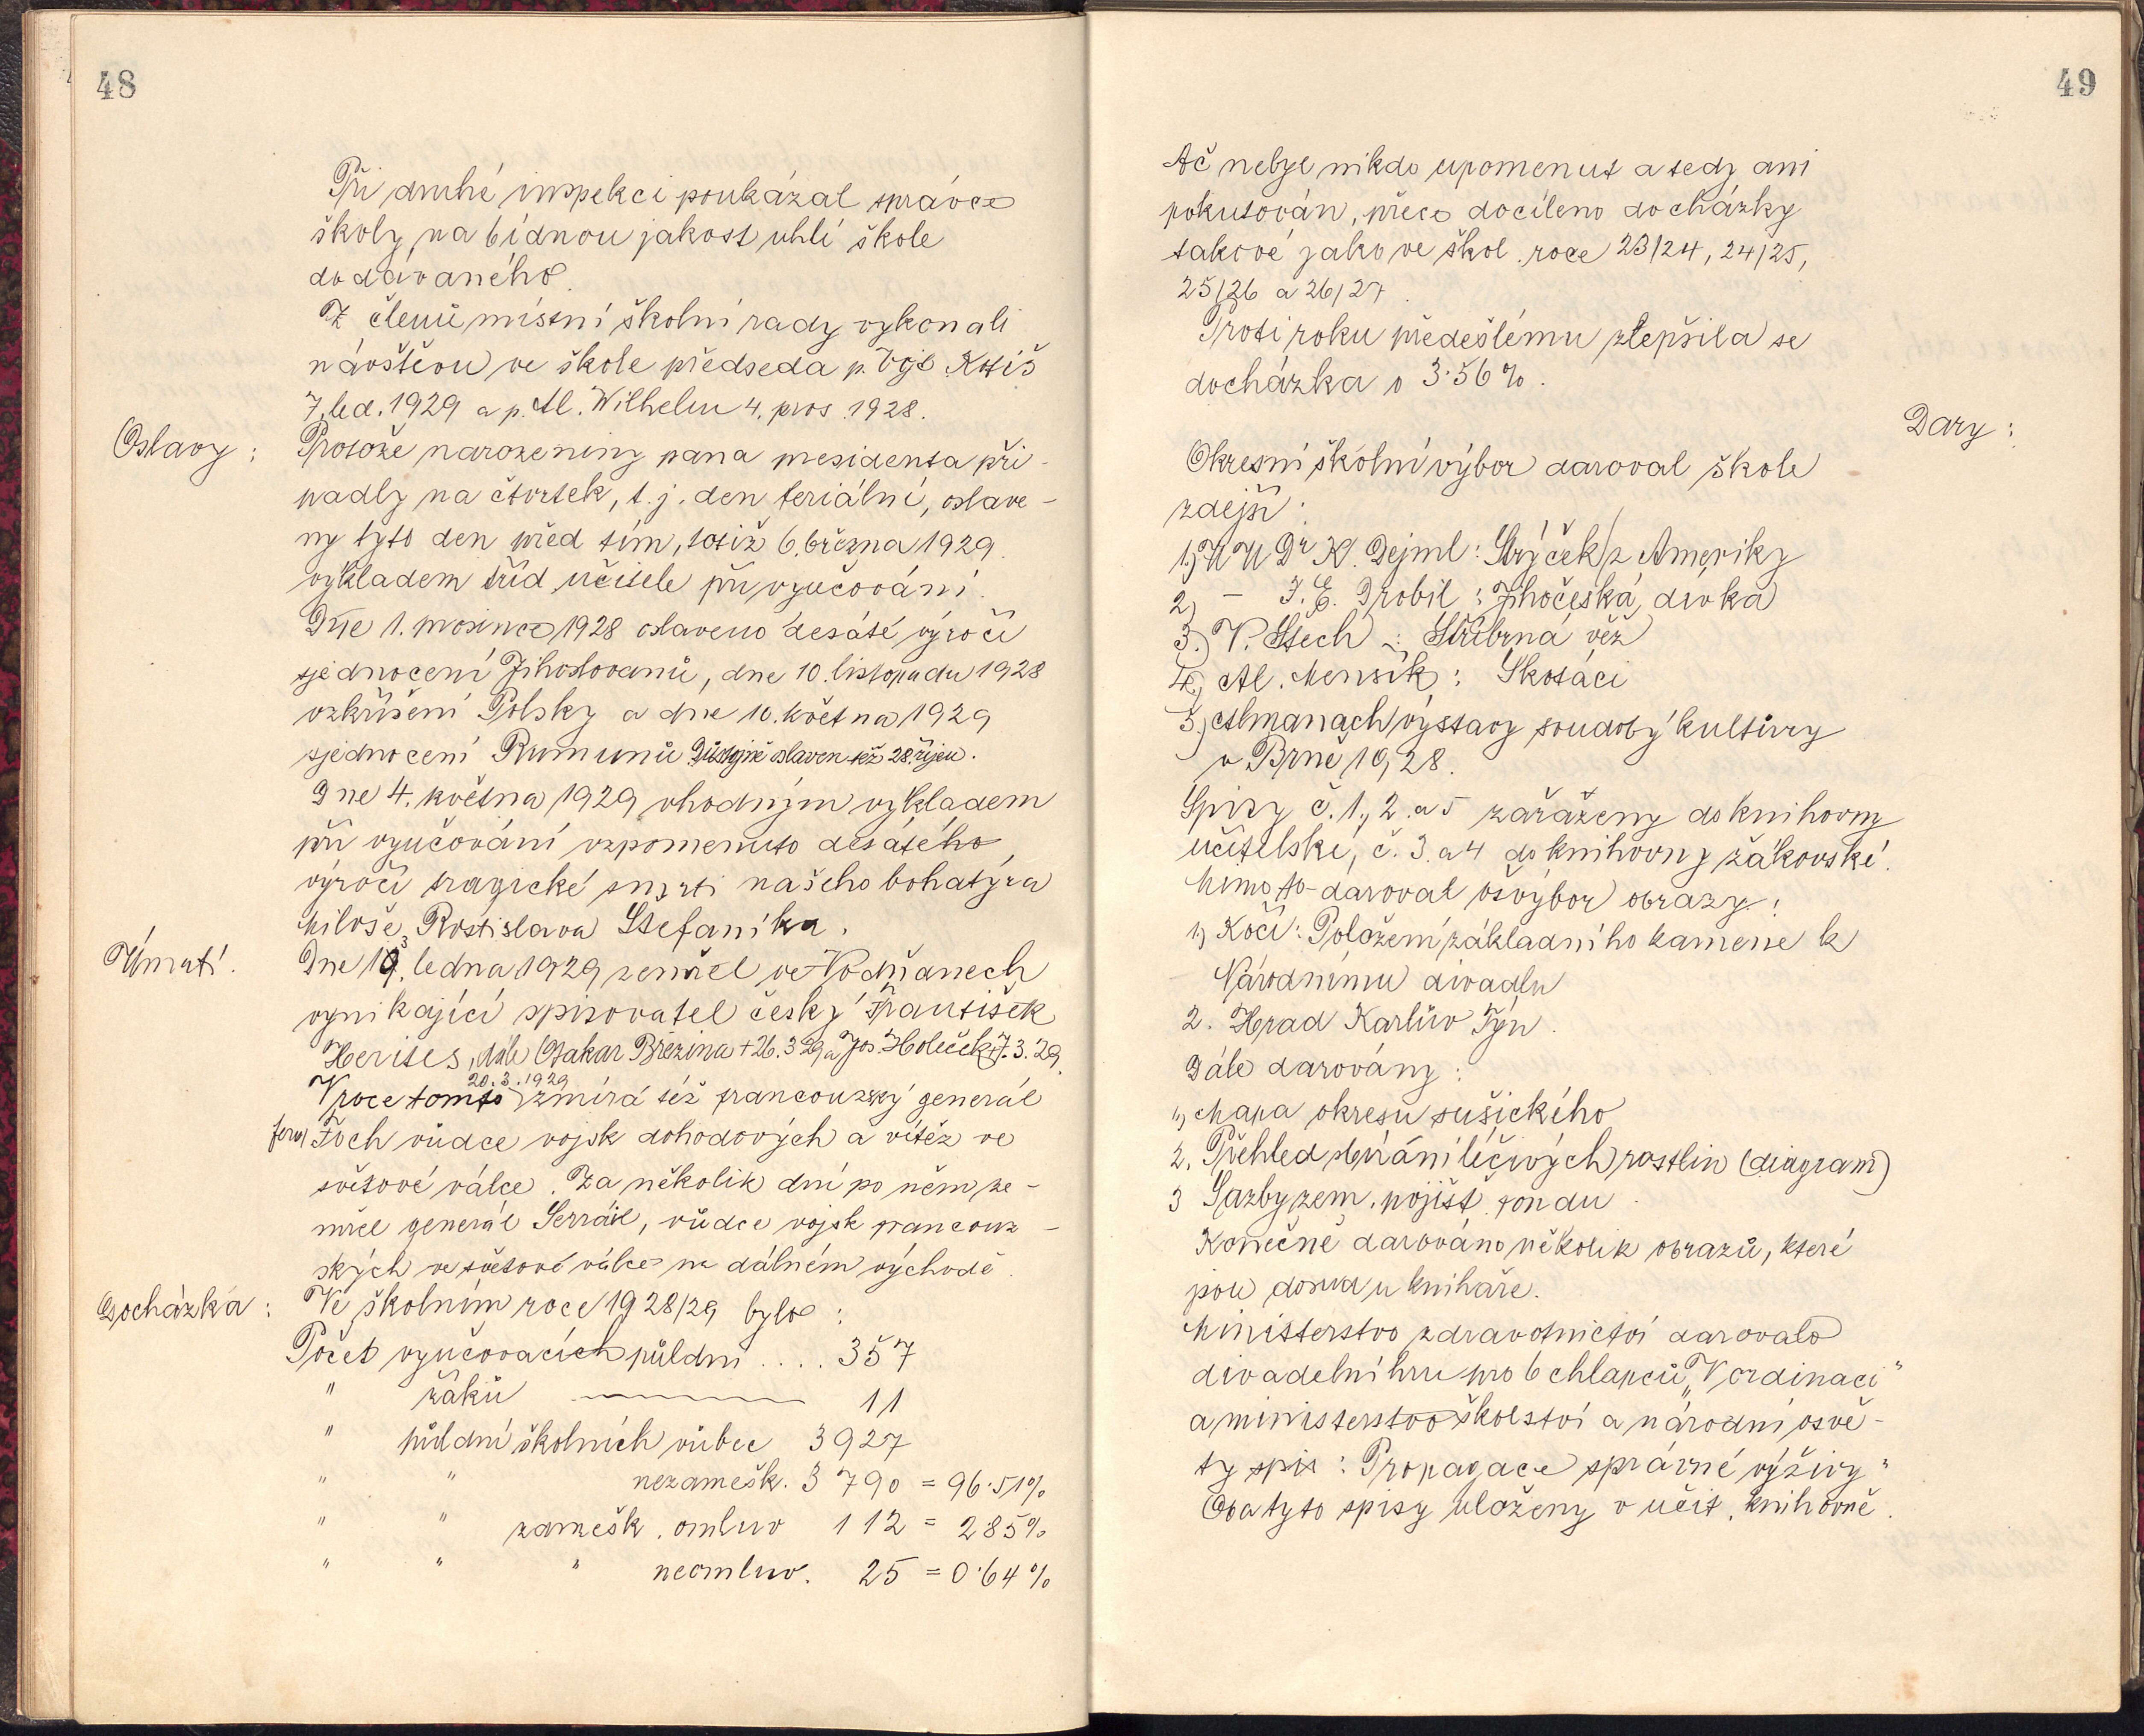 48
Při druhé inspekci poukázal správce
školy na bídnou jakost uhlí škole
dodávaného.
Z členů místní školní rady vykonali
návštěvu ve škole předseda p. Vojt. Kotiš
7. led. 1929 a p. Al. Wilhelm 4. pros. 1928.
Oslavy:
Protože narozeniny pana presidenta při-
padly na čtvrtek, t. j. den feriální, oslave-
ny tyto den před tím, totiž 6. března 1929
výkladem tříd. učitele při vyučování.
Dne 1. prosince 1928 oslaveno desáté výročí
sjednocení Jihoslovanů, dne 10. listopadu 1928
vzkříšení Polsky a dne 10. května 1929
sjednocení Rumunů. Důstojně oslaven též 28. říjen.
Dne 4. května 1929 vhodným výkladem
při vyučování vzpomenuto desátého
výročí tragické smrti našeho bohatýra
Miloše Rostislava Štefanika.
Úmrtí.
Dne 19. ledna 1929 zemřel ve Vodňanech
vynikající spisovatel český František
Herites, dále Otakar Březina + 26. 3 29 a Jos. Holeček + 7. 3. 29.
20. 3. 1929
V roce tomto zmírá též francouzský generál
Foch vůdce vojsk dohodových a vítěz ve
světové válce. Za několik dní po něm ze-
mřel generál Serráil, vůdce vojsk francouz-
ských ve světové válce na dálném východě.
Docházka:
Ve školním roce 1928/29 bylo:
Počet vyučovacích půldnů .... 357
" žáků 11
" půldní školních vůbec 3927
" " nezamešk. 3790 = 96·51%
" " zamešk. omluv 112 = 285%
" " " neomluv. 25 = 0·64%
49
Ač nebyl nikdo upomenut a tedy ani
pokutován, přece docíleno docházky
takové jako ve škol. roce 23/24, 24/25,
25/26 a 26/27.
Proti roku předešlému zlepšila se
docházka o 3·56%.
Dary:
Okresní školní výbor daroval škole
zdejší:
1) MUDr K. Dejml: Strýček z Ameriky
2) - J. E. Drobil: Jihočeská dívka
3.) V. Štech: Stříbrná věž
4.) Al. Menšík: Skotáci
5.) Almanach výstavy soudobý kultury
v Brně 1928.
Spisy č. 1., 2. a 5 zařaženy do knihovny
učitelské, č. 3. a 4 do knihovny žákovské.
Mimo to daroval ošvýbor obrazy:
1) Kočí: Položení základního kamene k
Národnímu divadlu
2. Hrad Karlův Týn.
Dále darovány:
1) Mapa okresu sušického
2. Přehled sbírání léčivých rostlin (diagram)
3 Sazby zem. pojišť. fondu.
Konečně darováno několik obrazů, které
jsou dosud u knihaře.
Ministerstvo zdravotnictví darovalo
divadelní hru pro 6 chlapců „V ordinaci"
a ministerstvo školství a národní osvě-
ty spis: Propagace správné výživy"
Oba tyto spisy uloženy v učit. knihovně.